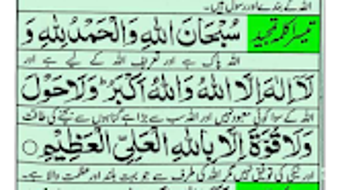 اللہ کے بندے اور رسول ہیں۔
تیسرا کلمہ تمجید سُبْحَانَ اللهِ وَالْحَمْدُ لِلّٰهِ وَ
اللہ پاک ہے اور تعریف اللہ کے لیے ہے اور
لَآ اِلٰهَ اِلَّا اللهُ وَاللهُ اَكْبَرُ ؕ وَلَا حَوْلَ
اللہ کے سوا کوئی معبود نہیں اور اللہ سب سے بڑا ہے گناہوں سے بچنے کی طاقت
وَلَا قُوَّةَ اِلَّا بِاللهِ الْعَلِيِّ الْعَظِيْمِ ○
اور نیکی کی توفیق نہیں مگر اللہ کی طرف سے جو بہت بلند اور عظمت والا ہے۔